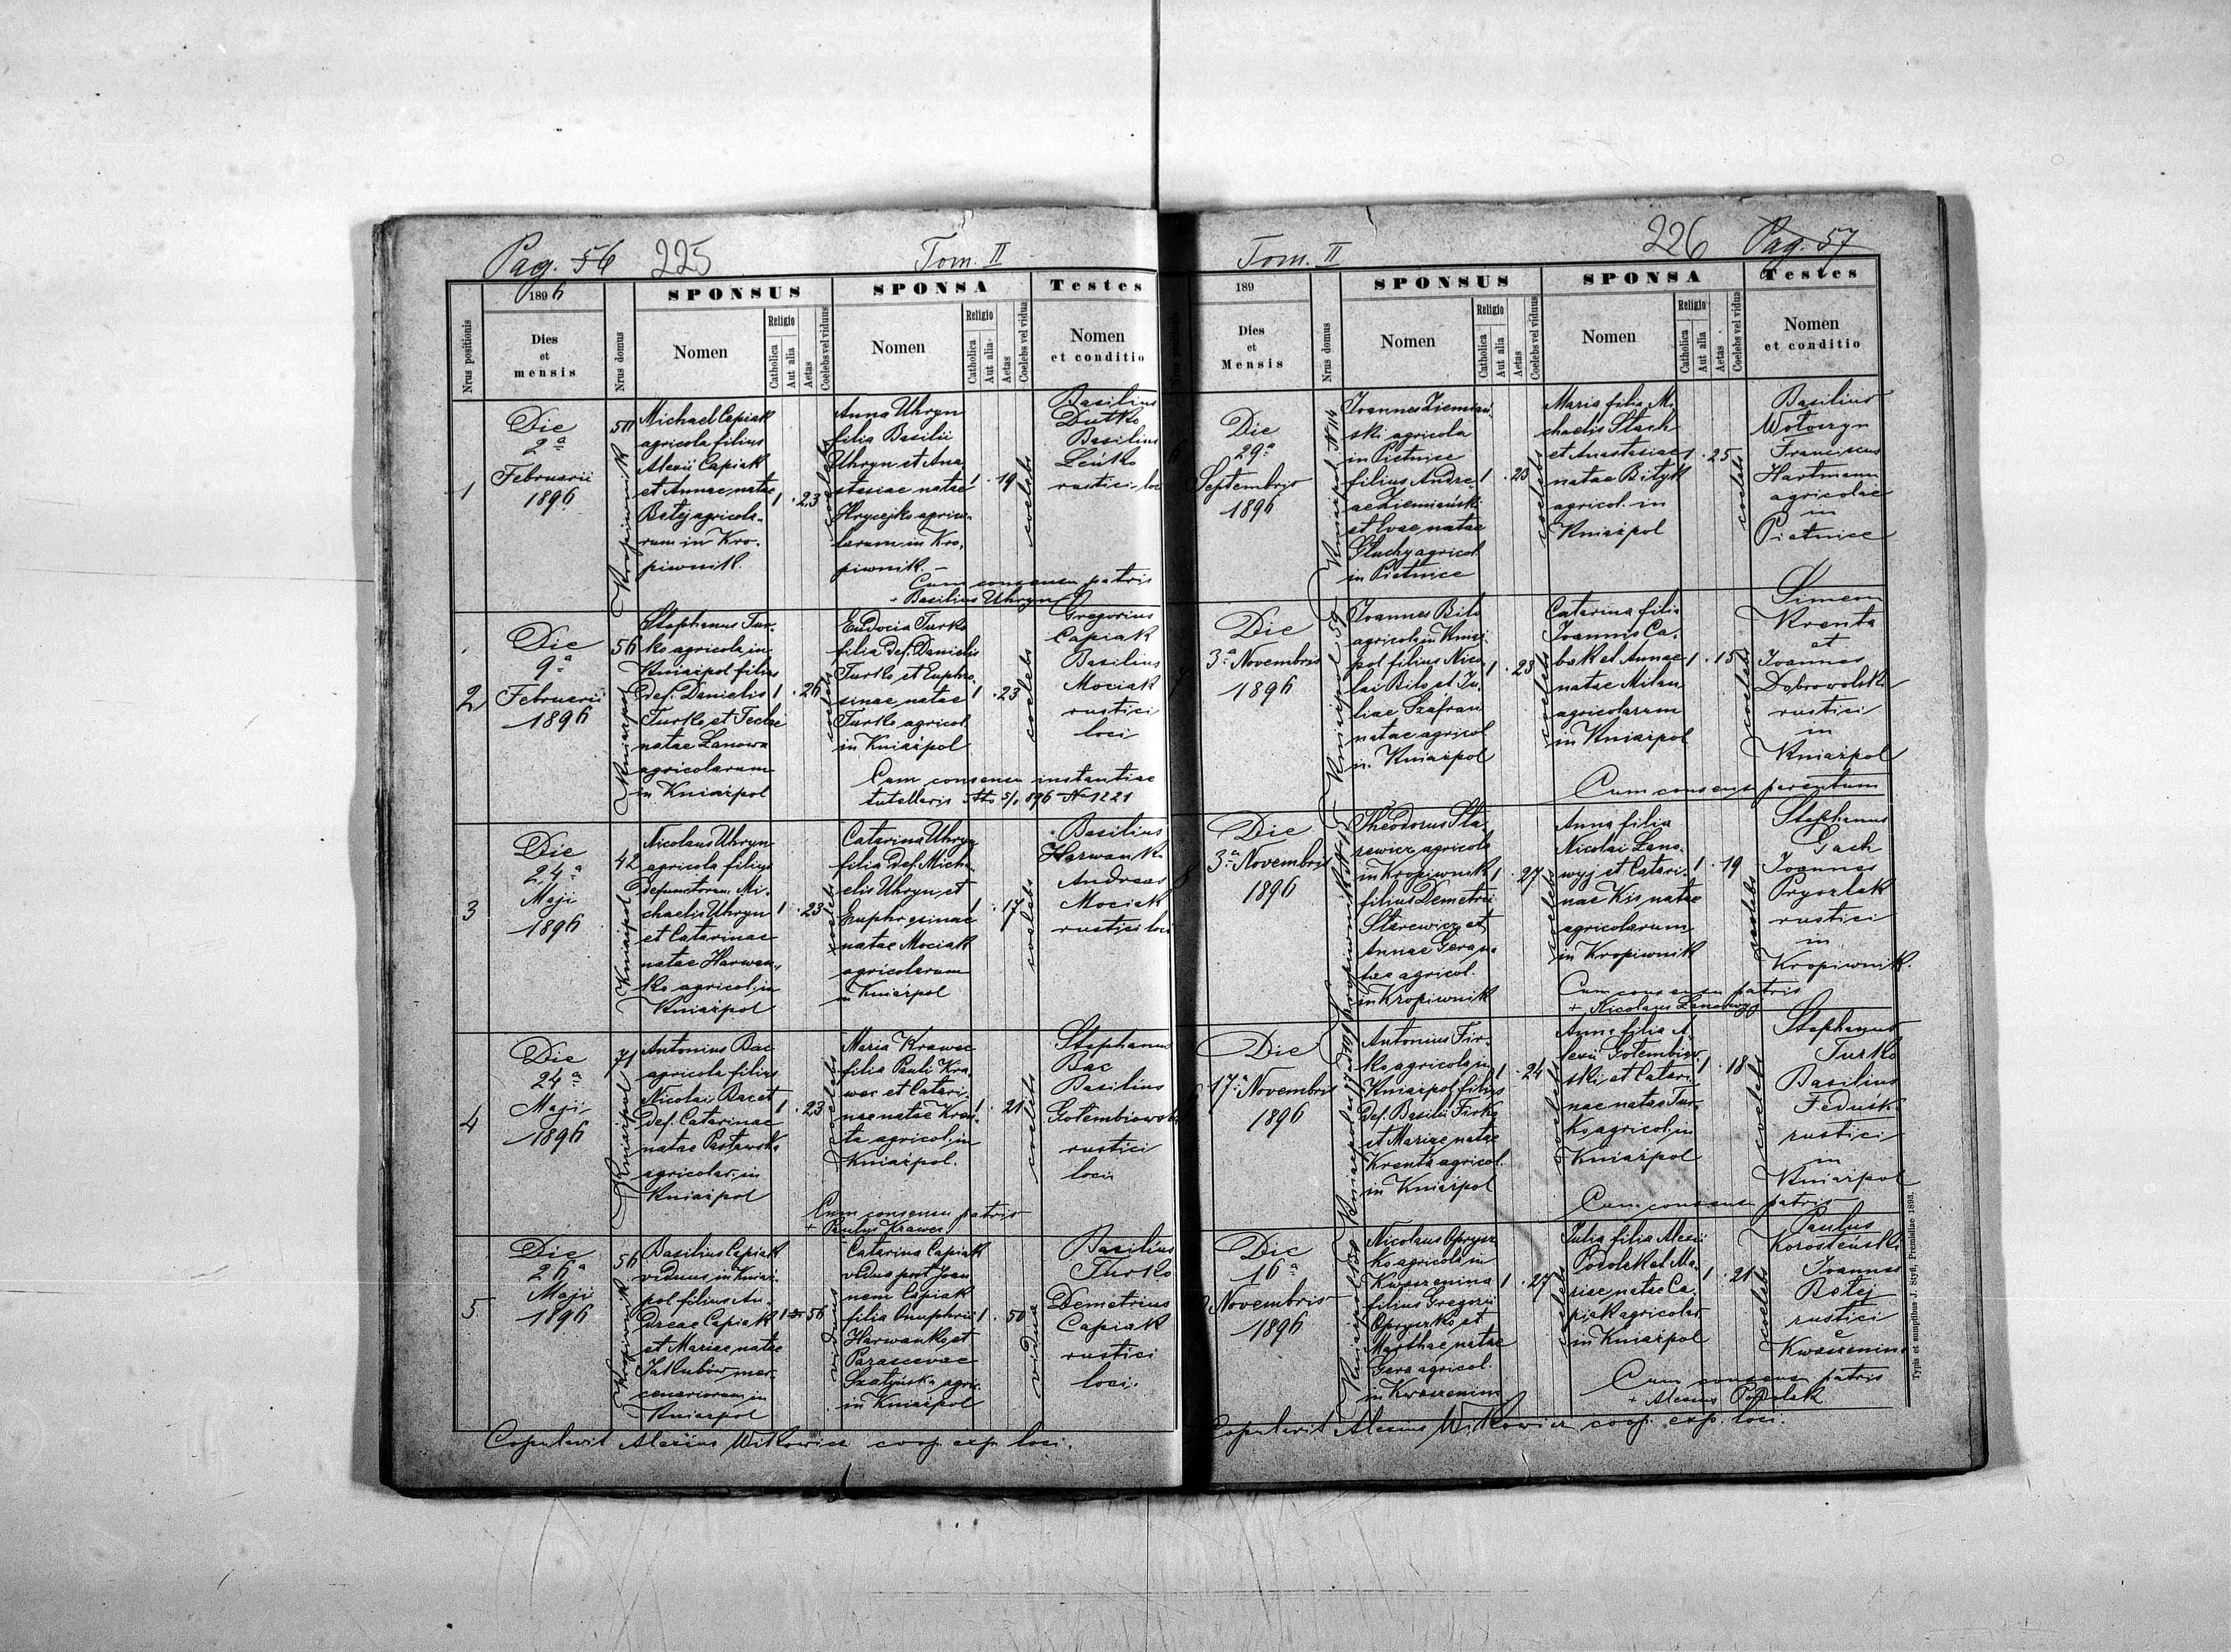 Pag. 56 225 Tom. II
1896 SPONSUS SPONSA Testes
Nrus positionis
Dies
et
mensis
Nrus domus
Nomen
Religio
Catholica
Aut alia
Aetas
Coelebs vel viduus
Nomen
Religio
Catholica
Aut alia
Aetas
Coelebs vel vidua
Nomen
et conditio
1
Die
2a
Februarii
1896
50
Kropiwnik
Michael Capiak
agricola filius
Alexii Capiak
et Annae natae
Batej agricola-
rum in Kro-
piwnik.
1 . 23
coelebs
Anna Uhryn
filia Basilii
Uhryn et Ana
stasiae natae
Hrycejko agrico-
larum in Kro-
piwnik. -
1 . 19
coelebs
Basilius
Dutko
Basilius
Leńko
rustici loc
Cum consensu patris
+ Basilius Uhryn
2
Die
9a
Februarii
1896
56
Kniażpol
Stephanus Tur-
ko agricola in
Kniażpol filius
def. Danielis
Turko et Teclae
natae Lanowa
agricolarum
in Kniażpol
1 . 26
coelebs
Eudocia Turko
filia def. Danielis
Turko et Euphro-
sinae natae
Turko agricol
in Kniażpol
1 . 23
coelebs
Gregorius
Capiak
Basilius
Mociak
rustici
loci
Cum consensu instantiae
tutellaris dtto 5/1 896 No 1221
3
Die
24a
Maji
1896
42
Kniażpol
Nicolaus Uhryn
agricola filius
defunctorum Mi-
chaelis Uhryn
et Catarinae
natae Harwan-
ko agricol. in
Kniażpol
1 . 23
coelebs
Catarina Uhryn
filia def. Micha-
elis Uhryn et
Euphrosinae
natae Mociak
agricolarum
in Kniażpol
1 . 17
coelebs
Basilius
Harwanko
Andreas
Mociak
rustici loci
4
Die
24a
Maji
1896
71
Kniażpol
Antonius Bac
agricola filius
Nicolai Bac et
def. Catarinae
natae Pastawska
agricolar. in
Kniażpol
1 . 23
coelebs
Maria Krawec
filia Pauli Kra-
wec et Catari-
nae natae Kren-
ta agricol. in
Kniażpol.
1 . 21
coelebs
Stephanus
Bac
Basilius
Gołembiowski
rustici
loci
Cum consensu patris
+ Paulus Krawec
5
Die
26a
Maji
1896
56
Basilius Capiak
viduus in Kniaż-
pol filius An-
dreae Capiak
et Mariae natae
Jakubów mer-
cenariorum in
Kniażpol
1 56
viduus
Catarina Capiak
vidua post Joan
nem Capiak
filia Onuphrii
Harwanko et
Parascevae
Szatyńska agric.
in Kniażpol
1 . 50
vidua
Basilius
Turko
Demetrius
Capiak
rustici
loci.
Copulavit Alexius Witkowicz coop. exp. loci.
Tom. II 226 Pag. 57
189 SPONSUS SPONSA Testes
Dies
et
Mensis
Nrus domus
Nomen
Religio
Catholica
Aut alia
Aetas
Coelebs vel viduus
Nomen
Religio
Catholica
Aut alia
Aetas
Coelebs vel vidua
Nomen
et conditio
6
Die
29a
Septembris
1896
Kniażpol N 114
Joannes Ziemiań-
ski agricola
in Piętnice
filius Andre-
ae Ziemiański
et Evae natae
Głuchy agricol
in Piętnice
1 . 25
coelebs
Maria filia Mi-
chaelis Stach
et Anastasiae
natae Bityk
agricol. in
Kniażpol
1 . 25
coelebs
Basilius
Wołoszyn
Franciscus
Hartmann
agricolae
in
Piętnice
7
Die
3a Novembris
1896
Kniażpol 59
Joannes Bilo
agricola in Kniaż-
pol filius Nico-
lai Bilo et Ju-
liae Szafran
natae agricol
in Kniażpol
1 . 23
coelebs
Catarina filia
Joannis Ca-
bak et Annae
natae Milan
agricolarum
in Kniażpol
1 . 15
coelebs
Simeon
Krenta
et
Joannes
Dobrowolski
rustici
in
Kniażpol
Cum consensu parentum
8
Die
3a Novembris
1896
Theodorus Sta-
rewicz agricola
in Kropiwnik
filius Demetrii
Starewicz et
Annae Gera na-
tae agricol.
in Kropiwnik
1 . 27
coelebs
Anna filia
Nicolai Lano-
wyj et Catari-
nae Kis natae
agricolarum
in Kropiwnik
1 . 19
coelebs
Stephanus
Gach
Joannes
Prysztak
rustici
in
Kropiwnik.
Cum consensu patris
+ Nicolaus Lanowyj
Die
17a Novembris
1896
Antonius Fir-
ko agricola in
Kniażpol filius
def. Basilii Firko
et Mariae natae
Krenta agricol.
in Kniażpol
1 . 24
coelebs
Anna filia A-
lexii Gołembiow-
ski et Catari-
nae natae Tur-
ko agricol. in
Kniażpol
1 . 18
coelebs
Stephanus
Turko
Basilius
Feduśk
rustici
in
Kniażpol
Cum consensu patris
Die
16a
Novembris
1896
Nicolaus Oprysz
ko agricola in
Kwaszenina
filius Gregorii
Opryszko et
Marthae natae
Gera agricol.
in Kwaszenini
1 . 27
coelebs
Julia filia Alexii
Podolak et Ma-
riae natae Ca-
piak agricolar.
in Kniażpol
1 . 21
coelebs
Paulus
Korosteński
Joannes
Batej
rustici
e
Kwaszenina
Cum consensu patris
+ Alexius Podolak
Copulavit Alexius Witkowicz coop. exp. loci.
Typis et sumptibus J. Styfi, Premisliae 1893.